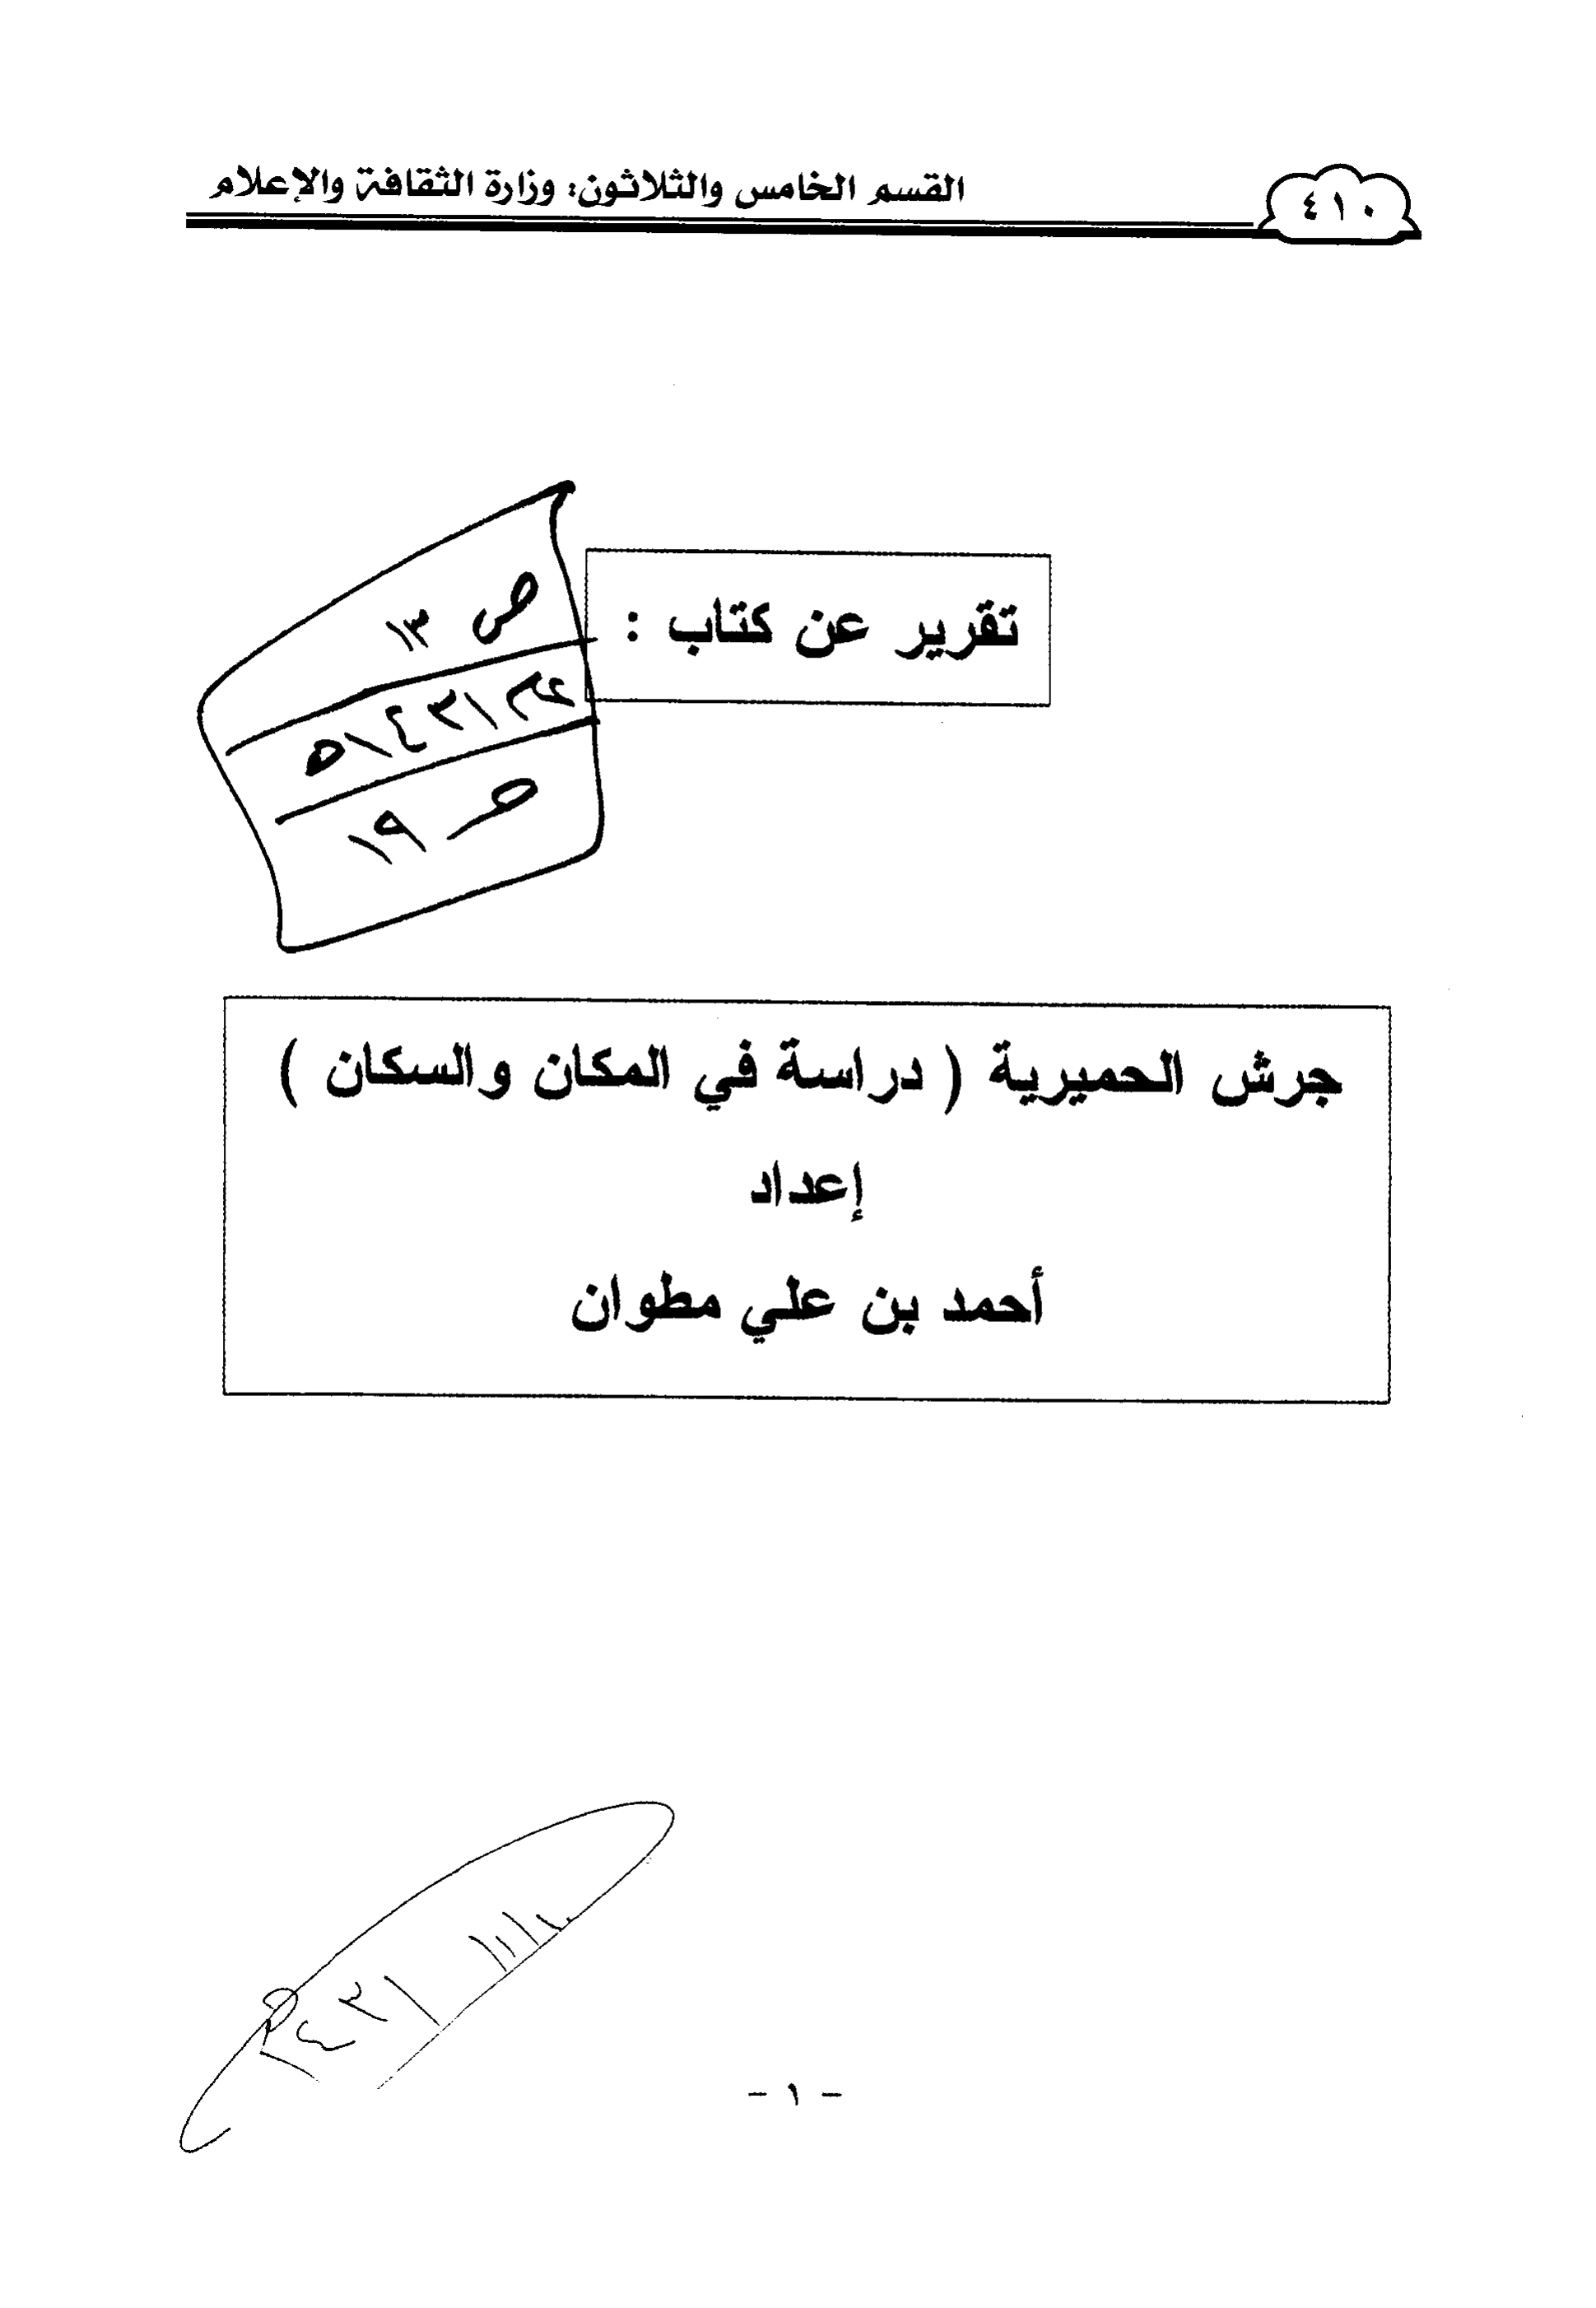 القسم الخامس والثلاثون: وزارة الثقافة والإعلام
٤١٠
ص ١٣
تقرير عن كتاب :
ص ١٩
جرش الحميرية ( دراسة في المكان والسكان )
إعداد
أحمد بن علي مطوان
- ١ -